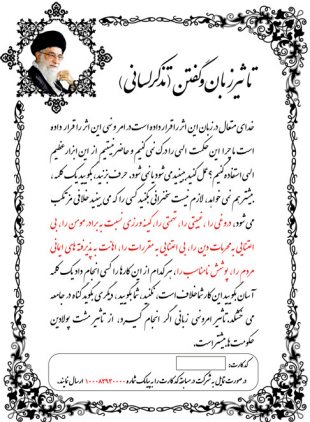 تاثیر زبان و گفتن (تذکر لسانی)
خدای متعال در زبان این اثر را قرار داده است در امر و نهی این اثر را قرار داده
است ما چرا این حکمت الهی را درک نمی کنیم و حاضر نیستیم از این ابزار عظیم
الهی استفاده کنیم؟ عمل کنید ببینید می شود یا نمی شود. حرف بزنید، بگویید یک کلمه،
بیشتر هم نمی خواهد، لازم نیست سخنرانی بکنید کسی را که می بینید خلافی مرتکب
می شود، دروغی را، غیبتی را، تهمتی را، کینه ورزی نسبت به برادر مومن را، بی
اعتنایی به محرمات دین را، بی اعتنایی به مقررات را، اهانت به پذیرفته های ایمانی
مردم را، پوشش نامناسب را، هر کدام از این کارها را کسی انجام داد یک کلمه
آسان بگویید این کار شما خلاف است، نکنید، شما بگویید، دیگری بگوید گناه در جامعه
می خشکد. تأثیر امر و نهی زبانی اگر انجام گیرد، از تأثیر مشت پولادین
حکومت ها بیشتر است.
کد کارت:
در صورت تمایل به شرکت در مسابقه کد کارت را به پیامک شماره ۱۰۰۰۸۳۹۲۰۰۰۰ ارسال نمایند.